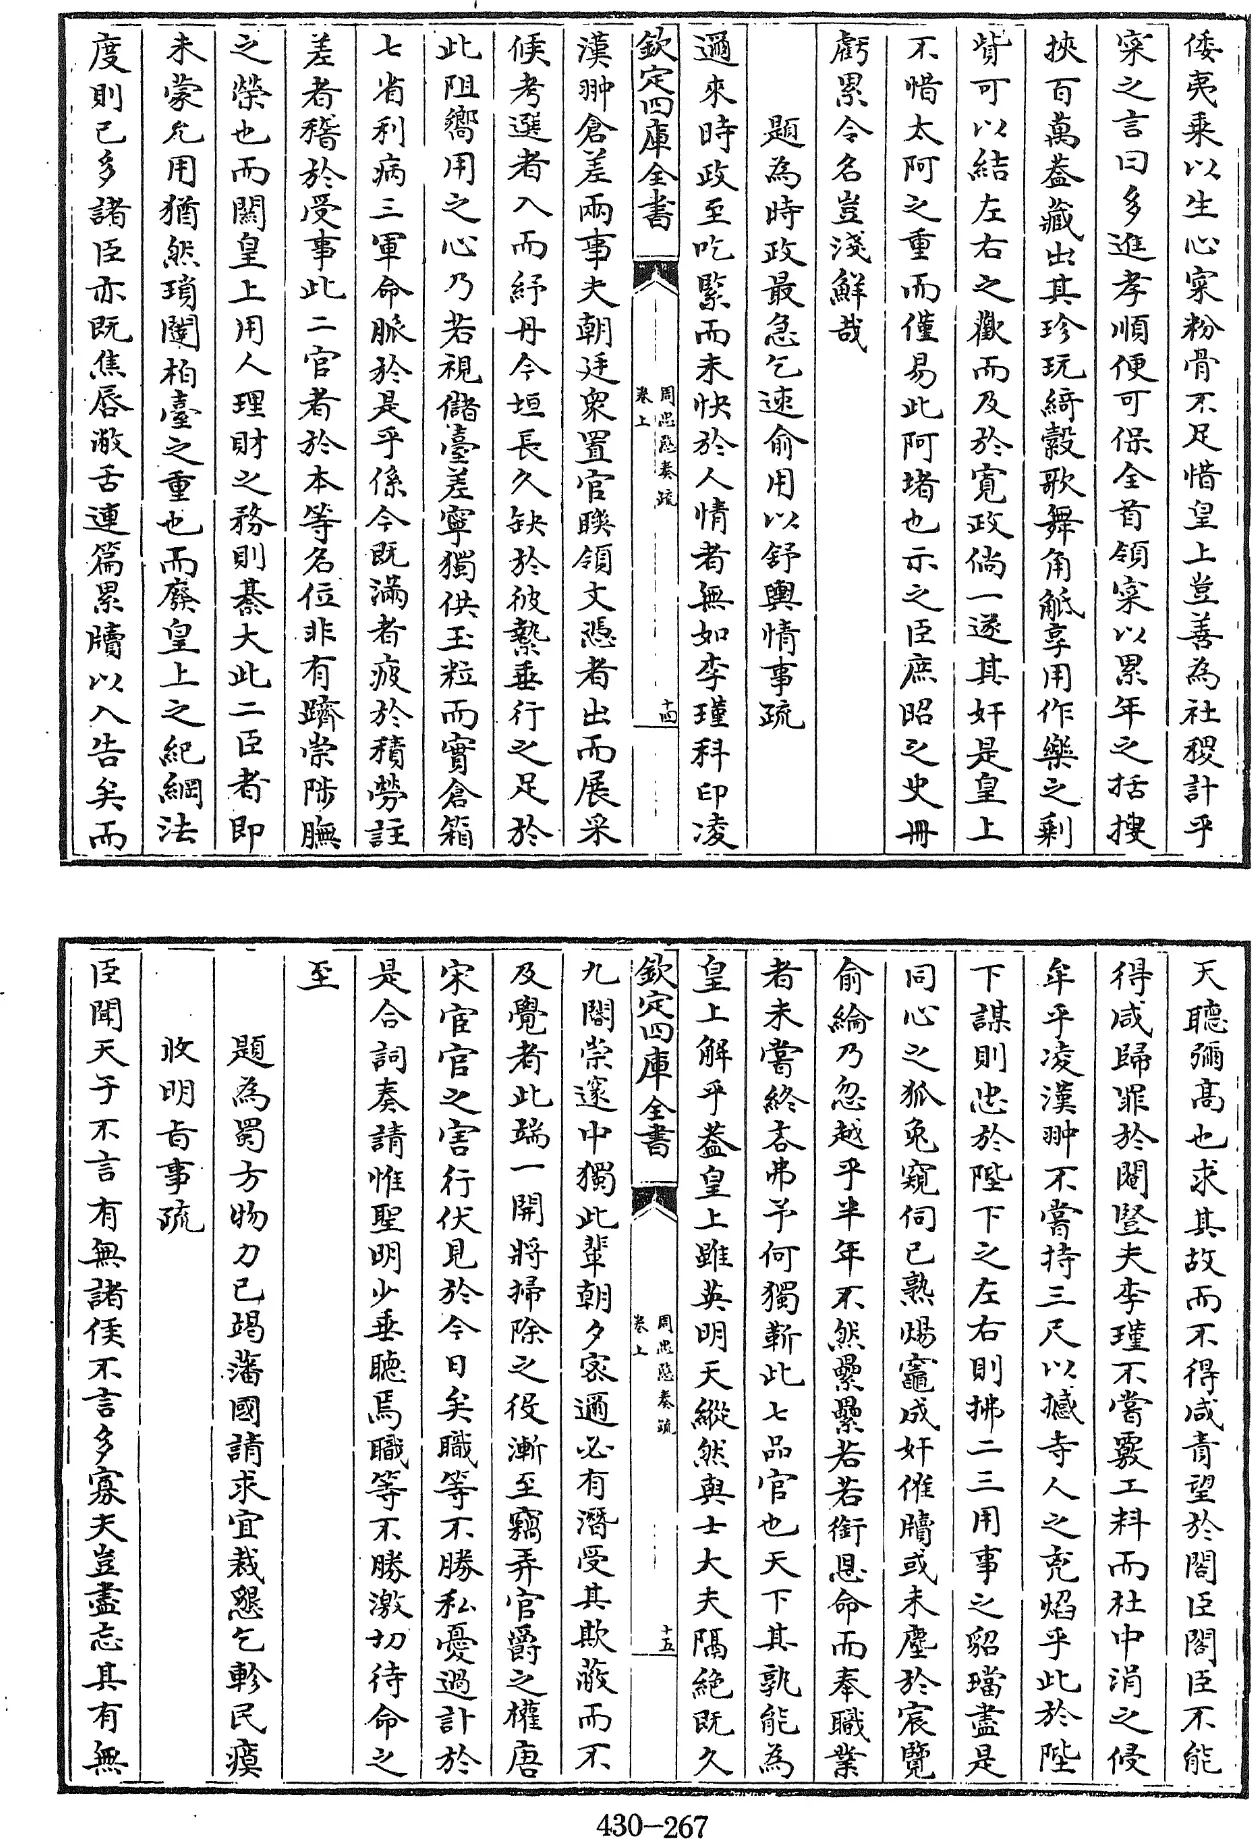 倭夷乘以生心寀粉骨不足惜皇上豈善為社稷計乎
寀之言曰多進孝順便可保全首領寀以累年之括搜
挾百萬葢藏出其珍玩綺縠歌舞角觝享用作樂之剩
貲可以結左右之歡而及於寛政倘一遂其奸是皇上
不惜太阿之重而僅易此阿堵也示之臣庶昭之史冊
虧累令名豈淺鮮哉
題為時政最急乞速俞用以舒輿情事疏
邇來時政至吃緊而未快於人情者無如李瑾科印凌
欽定四庫全書
周忠愍奏疏
卷上
十四
漢翀倉差兩事夫朝廷衆置官聮領文憑者出而展采
候考選者入而紓丹今垣長久缺於彼縶垂行之足於
此阻嚮用之心乃若視儲臺差寧獨供玉粒而實倉箱
七省利病三軍命脈於是乎係今既滿者疲於積勞註
差者稽於受事此二官者於本等名位非有躋崇陟膴
之榮也而關皇上用人理財之務則綦大此二臣者即
未蒙允用猶然瑣闥柏臺之重也而廢皇上之紀綱法
度則已多諸臣亦既焦唇敝舌連篇累牘以入告矣而
天聽彌高也求其故而不得咸責望於閣臣閣臣不能
得咸歸罪於閹豎夫李瑾不嘗覈工料而杜中涓之侵
牟乎凌漢翀不嘗持三尺以撼寺人之兇焰乎此於陛
下謀則忠於陛下之左右則拂二三用事之貂璫盡是
同心之狐兔窺伺已熟煬竈成奸催牘或未塵於宸覽
俞綸乃忽越乎半年不然纍纍若若銜恩命而奉職業
者未嘗終吝弗予何獨靳此七品官也天下其孰能為
皇上解乎葢皇上雖英明天縱然與士大夫隔絶既久
欽定四庫全書
周忠愍奏疏
卷上
十五
九閽崇邃中獨此輩朝夕宻邇必有潛受其欺蔽而不
及覺者此端一開將掃除之役漸至竊弄官爵之權唐
宋宦官之害行伏見於今日矣職等不勝私憂過計於
是合詞奏請惟聖明少垂聽焉職等不勝激切待命之
至
題為蜀方物力已竭藩國請求宜裁懇乞軫民瘼
收明旨事疏
臣聞天子不言有無諸侯不言多寡夫豈盡忘其有無
430-267